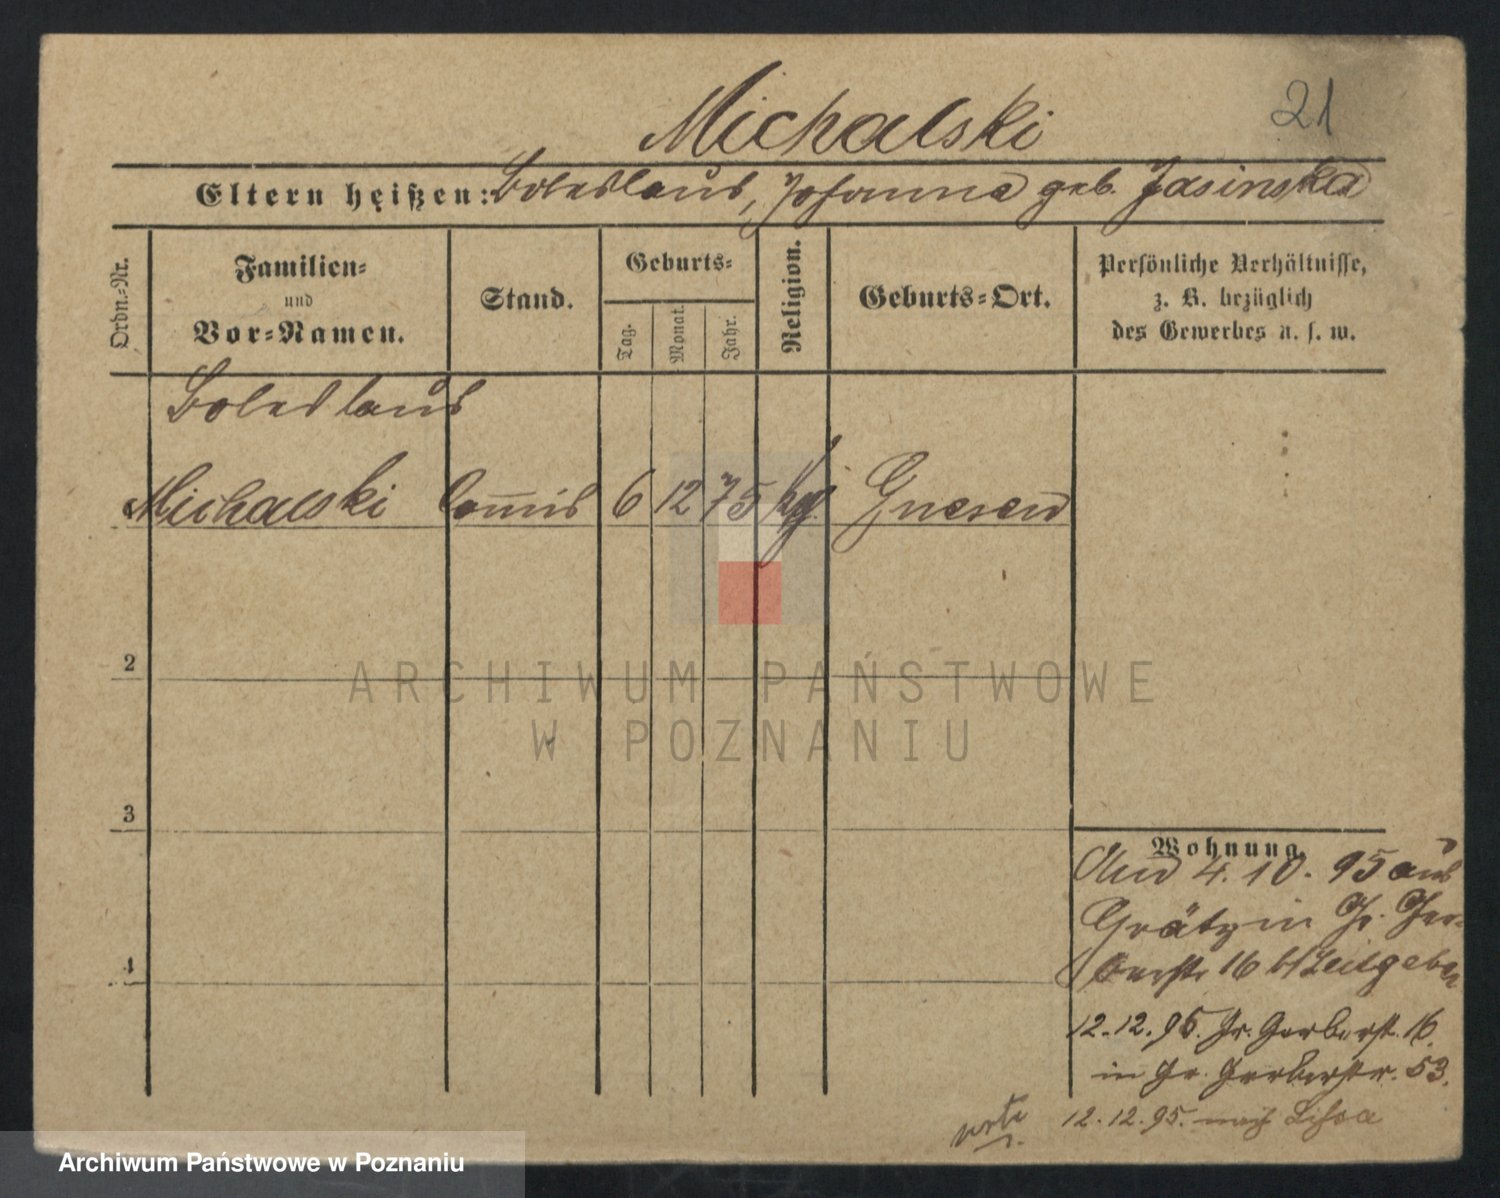 21
Michalski
Eltern heißen: Boleslaus, Johanna geb. Jasinska
Ordn.-Nr.
Familien-
und
Vor-Namen.
Stand.
Geburts-
Tag.
Monat.
Jahr.
Religion.
Geburts-Ort.
Persönliche Verhältnisse,
z. B. bezüglich
des Gewerbes u. s. w.
Boleslaus
Michalski Commis 6 12 75 kath. Gnesen
2
3
4
Wohnung.
4. 10. 95 aus
Grätz in Gr. Ger-
berstr 16 b/Leitgeber
12.12.95. Gr. Gerberst. 16.
in Gr. Gerberstr. 53.
12.12.95. nach Lissa
ARCHIWUM PAŃSTWOWE
W POZNANIU
Archiwum Państwowe w Poznaniu